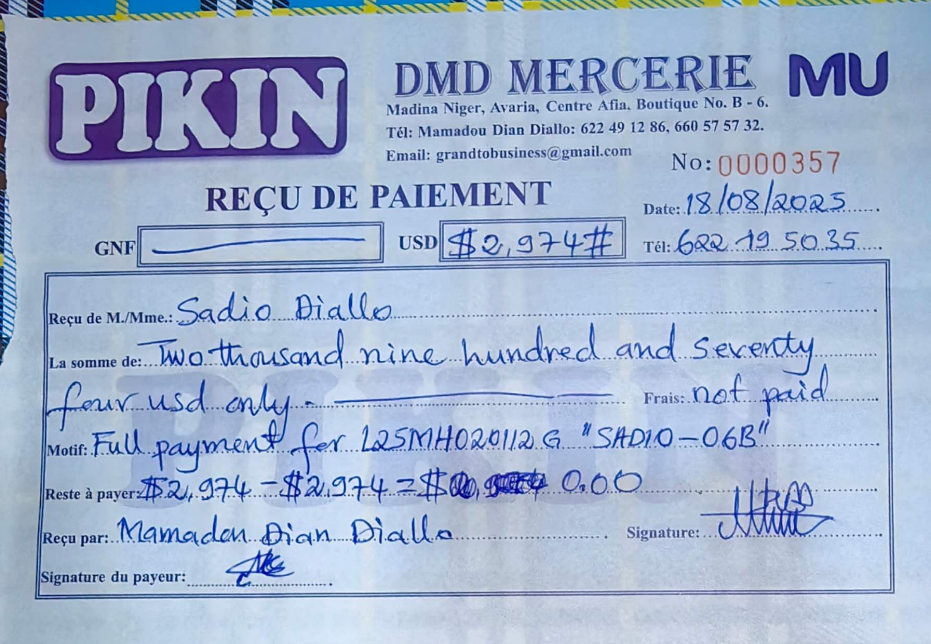 PIKIN
DMD MERCERIE
MU
Madina Niger, Avaria, Centre Afia, Boutique No. B - 6.
Tél: Mamadou Dian Diallo: 622 49 12 86, 660 57 57 32.
Email: grandtobusiness@gmail.com
No: 0000357
REÇU DE PAIEMENT
Date: 18/08/2025
GNF
USD $2,974#
Tél: 622 19 50 35
Reçu de M./Mme.: Sadio Diallo
La somme de: Two thousand nine hundred and seventy
four usd only.
Frais: not paid
Motif: Full payment for L25MH020112G "SADIO-06B"
Reste à payer: $2,974 - $2,974 = $ 0.00
Reçu par: Mamadou Dian Diallo
Signature:
Signature du payeur:
PIKIN